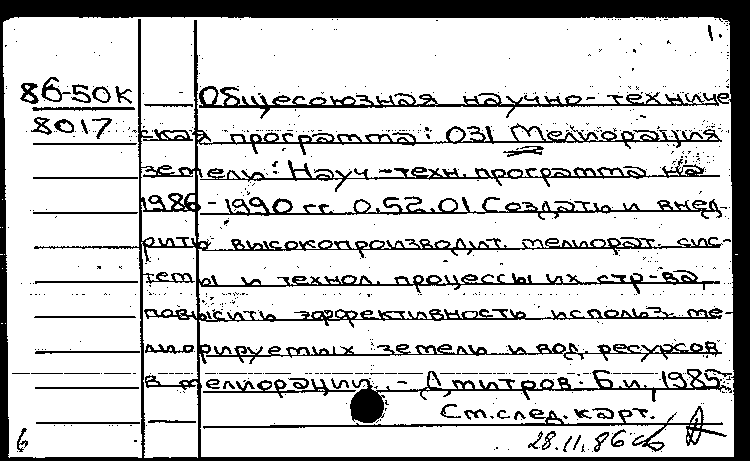 1.
86-50К Общесоюзная научно-техниче
8017 ская программа: 031 Мелиорация
земель: Науч.-техн. программа на
1986-1990 гг. 0.52.01 Создать и внед-
рить высокопроизводит. мелиорат. сис-
темы и технол. процессы их стр-ва,
повысить эффективность использ. ме-
лиорируемых земель и вод. ресурсов
в мелиорации. - Дмитров: Б.и., 1985
См. след. карт.
6 28.11.86